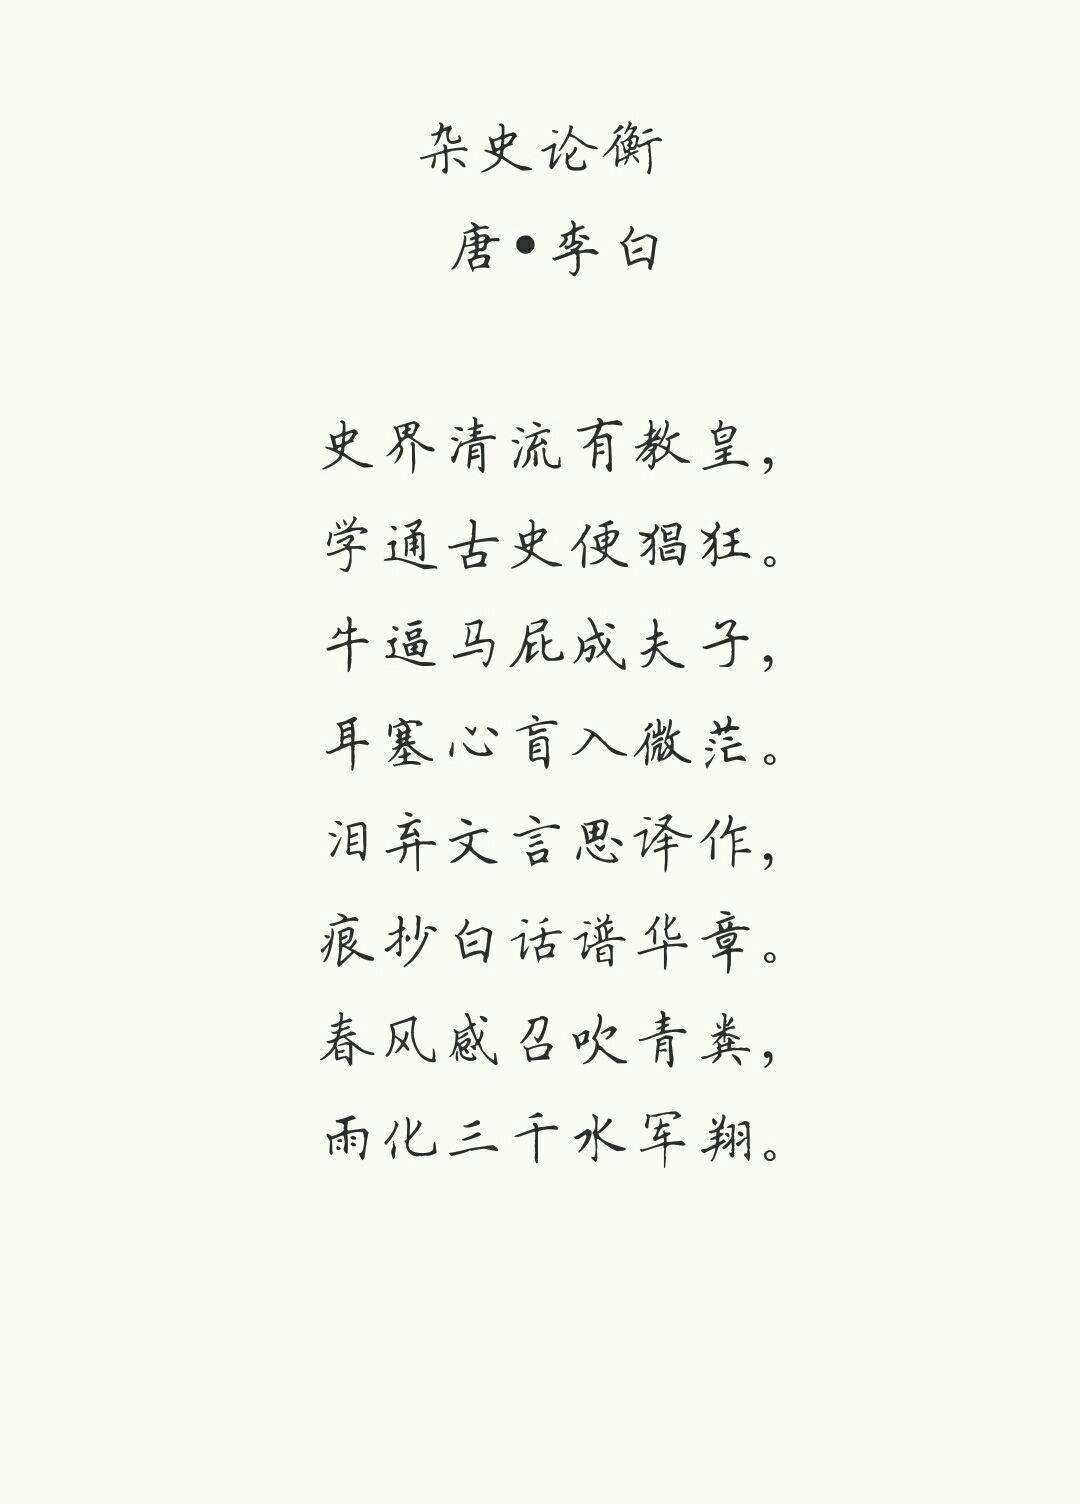 杂史论衡
唐•李白
史界清流有教皇，
学通古史便猖狂。
牛逼马屁成夫子，
耳塞心盲入微茫。
泪弃文言思译作，
痕抄白话谱华章。
春风感召吹青粪，
雨化三千水军翔。